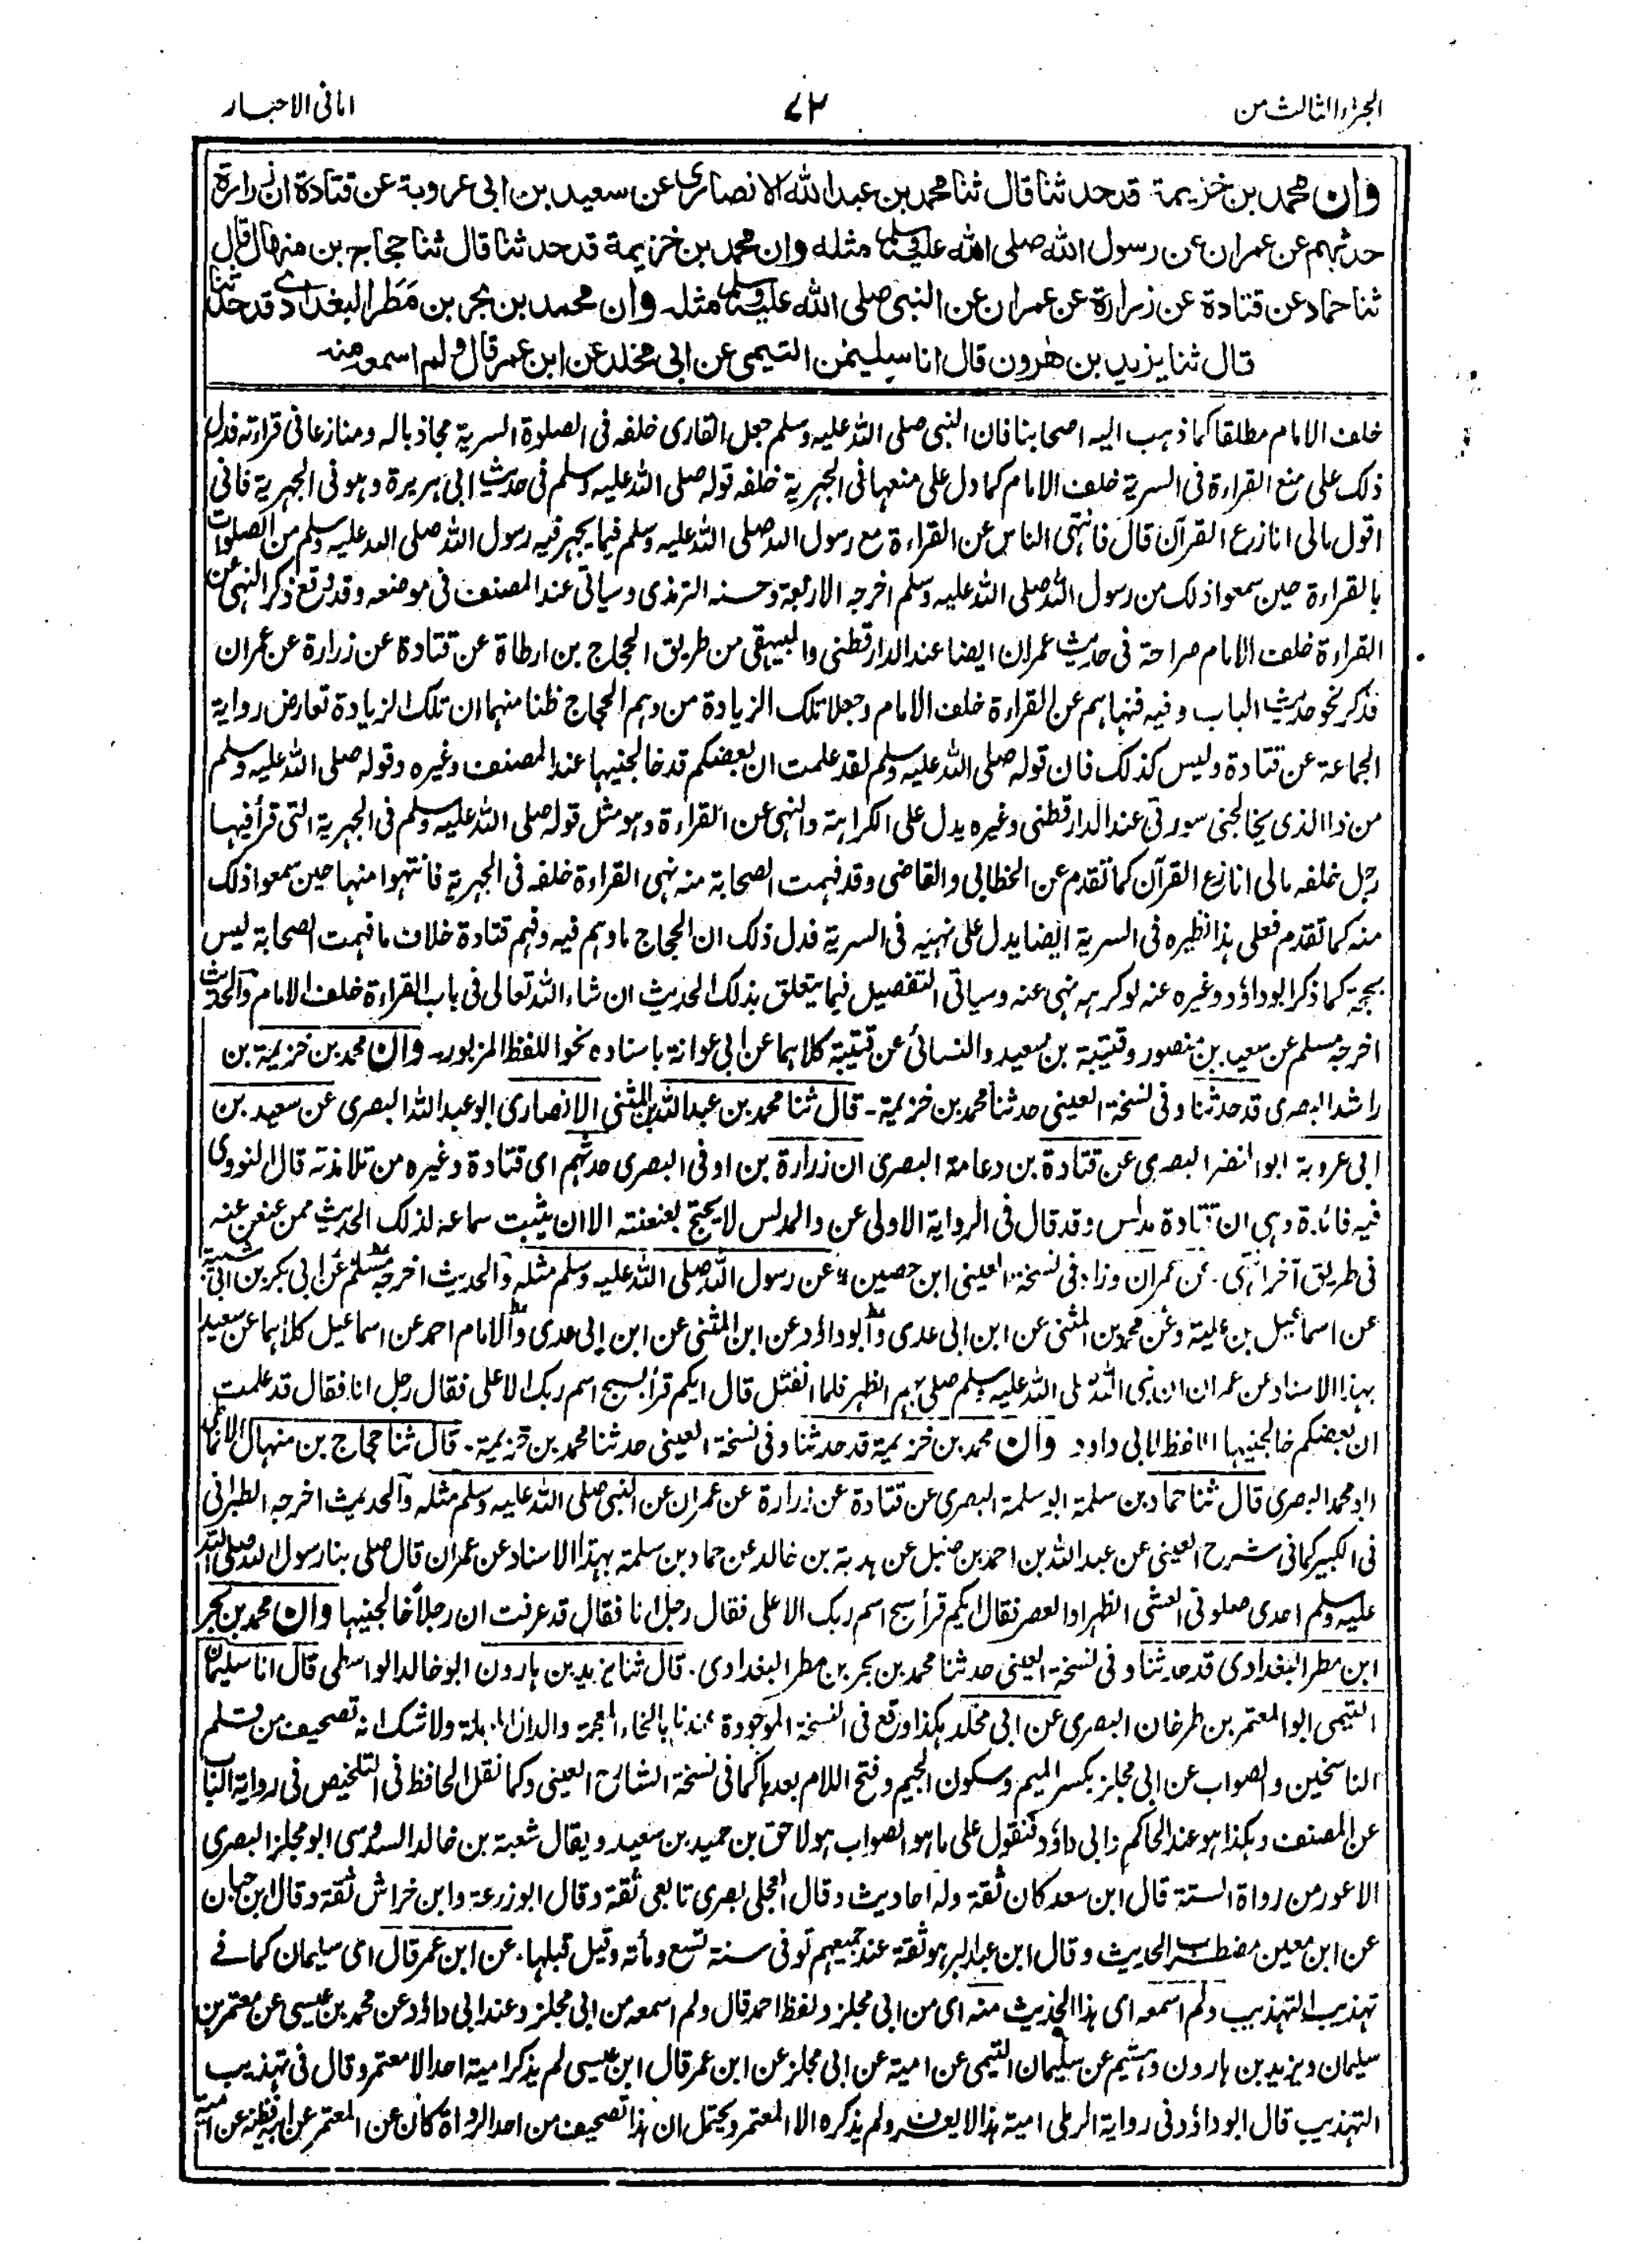 الجزء الثالث من
۷۲
امانی الاحبار
وان محمد بن خزیمة قد حدثنا قال ثنا محمد بن عبد الله الانصاری عن سعید بن ابی عروبة عن قتادة ان زرارة
حدثهم عن عمران عن رسول الله صلی الله علیه وسلم مثله وان محمد بن خزیمة قد حدثنا قال ثنا حجاج بن منهال قال
ثنا حماد عن قتادة عن زرارة عن عمران عن النبی صلی الله علیه وسلم مثله وان محمد بن بحر بن مَطَر البغدادی قد حدثنا
قال ثنا یزید بن هٰرون قال انا سلیمٰن التیمی عن ابی مخلد عن ابن عمر قال ولم اسمعه منه
خلف الامام مطلقا کما ذهب الیه اصحابنا فان النبی صلی الله علیه وسلم جعل القاری خلفه فی الصلوة السریة مجاذبا له ومنازعا فی قراءته فدل
ذلک علی منع القراءة فی السریة خلف الامام کما دل علی منعها فی الجهریة خلفه قوله صلی الله علیه وسلم فی حدیث ابی هریرة وهو فی الجهریة فانی
اقول مالی انازع القرآن قال فانتهی الناس عن القراءة مع رسول الله صلی الله علیه وسلم فیما یجهر فیه رسول الله صلی الله علیه وسلم من الصلوات
بالقراءة حین سمعوا ذلک من رسول الله صلی الله علیه وسلم اخرجه الاربعة وحسنه الترمذی وسیاتی عند المصنف فی موضعه وقد وقع ذکر النهی عن
القراءة خلف الامام صراحة فی حدیث عمران ایضا عند الدارقطنی والبیهقی من طریق الحجاج بن ارطاة عن قتادة عن زرارة عن عمران
فذکر نحو حدیث الباب وفیه فنهاهم عن القراءة خلف الامام وجعلا تلک الزیادة من وهم الحجاج ظنا منهما ان تلک الزیادة تعارض روایة
الجماعة عن قتادة ولیس کذلک فان قوله صلی الله علیه وسلم لقد علمت ان بعضکم قد خالجنیها عند المصنف وغیره وقوله صلی الله علیه وسلم
من ذا الذی یخالجنی سورتی عند الدارقطنی وغیره یدل علی الکراهة والنهی عن القراءة وهو مثل قوله صلی الله علیه وسلم فی الجهریة التی قرأ فیها
رجل خلفه مالی انازع القرآن کما تقدم عن الخطابی والقاضی وقد فهمت الصحابة منه نهی القراءة خلفه فی الجهریة فانتهوا منها حین سمعوا ذلک
منه کما تقدم فعلی هذا نظیره فی السریة ایضا یدل علی نهیه فی السریة فدل ذلک ان الحجاج ما وهم فیه وفهم قتادة خلاف ما فهمت الصحابة لیس
بحجة کما ذکر ابو داؤد وغیره عنه لو کرهه نهی عنه وسیاتی التفصیل فیما یتعلق بذلک الحدیث ان شاء الله تعالی فی باب القراءة خلف الامام والحدیث
اخرجه مسلم عن سعید بن منصور وقتیبة بن سعید والنسائی عن قتیبة کلاهما عن ابی عوانة باسناده نحو اللفظ المزبور۔ وان محمد بن خزیمة بن
راشد البصری قد حدثنا وفی نسخة العینی حدثنا محمد بن خزیمة۔ قال ثنا محمد بن عبد الله بن المثنی الانصاری ابو عبد الله البصری عن سعید بن
ابی عروبة ابو النضر البصری عن قتادة بن دعامة البصری ان زرارة بن اوفی البصری حدثهم ای قتادة وغیره من تلامذته قال النووی
فیه فائدة وهی ان قتادة مدلس وقد قال فی الروایة الاولی عن والمدلس لا یحتج بعنعنته الا ان یثبت سماعه لذلک الحدیث ممن عنعن عنه
فی طریق آخر انتهی۔ عن عمران وزاد فی نسخة العینی ابن حصین عن رسول الله صلی الله علیه وسلم مثله والحدیث اخرجه مسلم عن ابی بکر بن ابی شیبة
عن اسماعیل بن علیة وعن محمد بن المثنی عن ابن ابی عدی وابو داؤد عن ابن المثنی عن ابن ابی عدی والامام احمد عن اسماعیل کلاهما عن سعید
بهذا الاسناد عن عمران ان نبی الله صلی الله علیه وسلم صلی بهم الظهر فلما انفتل قال ایکم قرأ بسبح اسم ربک الاعلی فقال رجل انا فقال قد علمت
ان بعضکم خالجنیها اللفظ لابی داود وان محمد بن خزیمة قد حدثنا وفی نسخة العینی حدثنا محمد بن خزیمة۔ قال ثنا حجاج بن منهال الانماطی
ابو محمد البصری قال ثنا حماد بن سلمة ابو سلمة البصری عن قتادة عن زرارة عن عمران عن النبی صلی الله علیه وسلم مثله والحدیث اخرجه الطبرانی
فی الکبیر کما فی شرح العینی عن عبد الله بن احمد بن حنبل عن هدبة بن خالد عن حماد بن سلمة بهذا الاسناد عن عمران قال صلی بنا رسول الله صلی الله
علیه وسلم احدی صلوتی العشی الظهر او العصر فقال ایکم قرأ سبح اسم ربک الاعلی فقال رجل انا فقال قد عرفت ان رجلاً خالجنیها وان محمد بن بحر
ابن مطر البغدادی قد حدثنا وفی نسخة العینی حدثنا محمد بن بحر بن مطر البغدادی۔ قال ثنا یزید بن هارون ابو خالد الواسطی قال انا سلیمان
التیمی ابو المعتمر بن طرخان البصری عن ابی مخلد هکذا وقع فی النسخة الموجودة عندنا بالخاء المعجمة والدال المهملة ولا شک انه تصحیف من قلم
الناسخین والصواب عن ابی مجلز بکسر المیم وسکون الجیم وفتح اللام بعدها کما فی نسخة الشارح العینی وکما نقل الحافظ فی التلخیص فی روایة الباب
عن المصنف وهکذا هو عند الحاکم وابی داؤد فنقول علی ما هو الصواب هو لاحق بن حمید بن سعید ویقال شعبة بن خالد السدوسی ابو مجلز البصری
الاعور من رواة الستة قال ابن سعد کان ثقة وله احادیث وقال العجلی بصری تابعی ثقة وقال ابو زرعة وابن خراش ثقة وقال ابن حبان
عن ابن معین مضطرب الحدیث وقال ابن عبد البر هو ثقة عند جمیعهم توفی سنة تسع ومأته وقیل قبلها۔ عن ابن عمر قال ای سلیمان کما فی
تهذیب التهذیب ولم اسمعه ای هذا الحدیث منه ای من ابی مجلز ولفظ احمد قال ولم اسمعه من ابی مجلز وعند ابی داؤد عن محمد بن عیسی عن معتمر بن
سلیمان ویزید بن هارون وهشیم عن سلیمان التیمی عن امیة عن ابی مجلز عن ابن عمر قال ابن عیسی لم یذکر امیة احد الا معتمر وقال فی تهذیب
التهذیب قال ابو داؤد فی روایة الرملی امیة هذا لا یعرف ولم یذکره الا المعتمر ویحتمل ان هذا تصحیف من احد الرواة کان عن المعتمر عن ابیه فظنه عن امیة